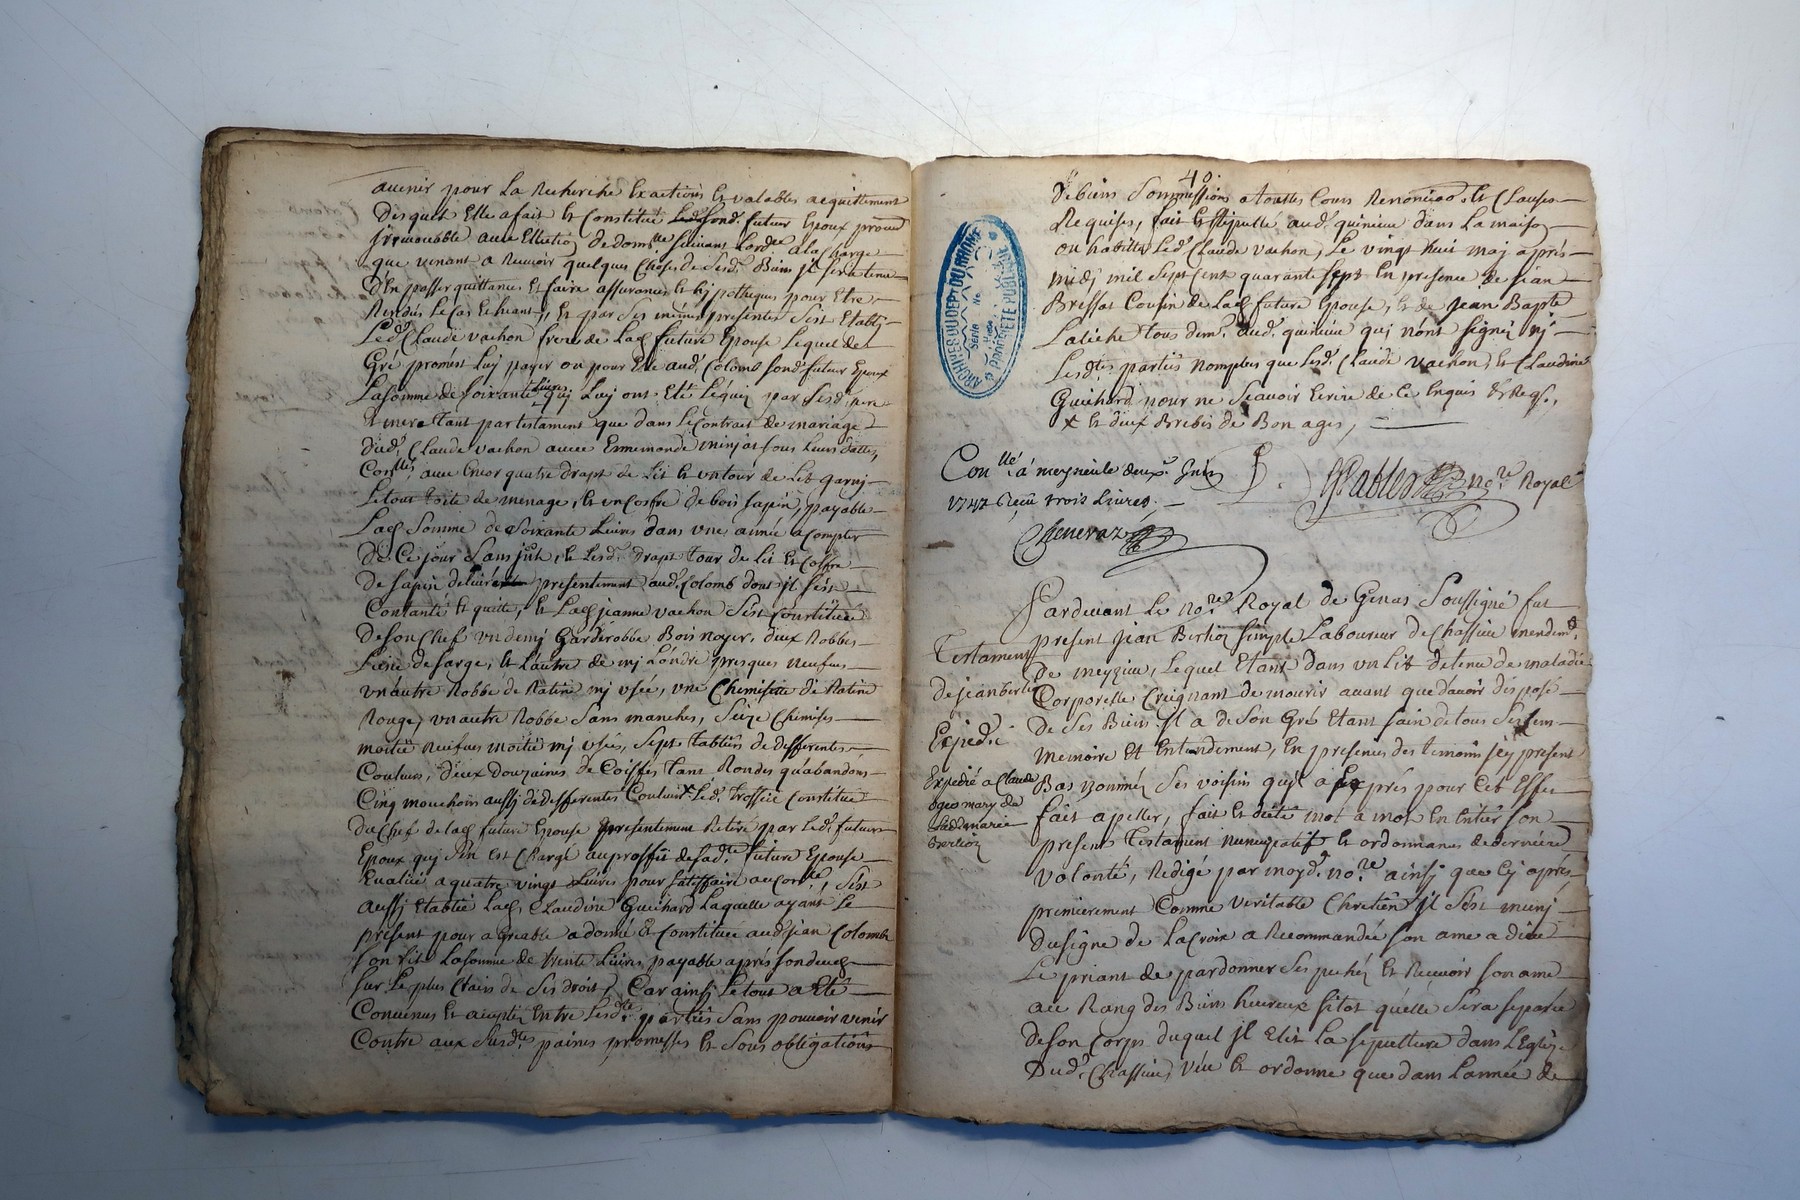 avenir pour La Recherche Exactions et valables acquittement
Desquels Elle a fait et Constitué Led. sond. futur Epoux procur
jrrevocable avec Election de dom.lle suivant Lordre a la charge
que venant a Recevoir quelques Choses de Sesd. Biens jl sera tenu
d'En passer quittances Et faire assurances et hypotheques pour Etre
Rendus le Cas Echeant, Et par Ses mémes presentes S'est Etably
Led. Claude vachon frere de Lad. future Epouse Lequel de
Gré promest Luy payer ou pour Elle aud. Colomb sond. futur Epoux
La somme de soixante Livres quj Luj ont Eté Léguéz par Sesd. pere
Et mere tant par testament que dans Le Contract de mariage
Dud. Claude vachon avec Ennemonde minjat sous Leurs dattes,
Con.llés, avec Encor quatre drapt de Lit et un tour de Lit garnj
Le tout toile de menage, et un Coffre de bois sapin, payable
Lad. Somme de Soixante Livres dans une année a Compter
De Ce jour Sans jnt. et Lesd. drapt tour de Lit et Coffre
De sapin delivré presentement aud. Colomb dont jl s'est
Contanté et quitte, Et Lad. jeanne vachon S'est Constituée
De son Chef un demj Garderobbe Bois noyer, deux Robbes
L'une de sarge, et L'autre de mj Londre presques neufves
un autre Robbe de Ratine mj usée, une Chemisette de Ratine
Rouge, un autre Robbe Sans manches, Seize Chemises
moitié neufves moitié mj usées, Sept tabliers de differentes
Couleurs, deux douzaines de Coiffes tant Rondes qu'abandons
Cinq mouchoirs aussj de differentes Couleurs Led. trossel Constitué
Du Chef de lad. future Epouse presentement Retiré par Led. futur
Epoux quj s'en est Chargé au proffit de sad. future Epouse
Evalüé a quatre vingt Livres pour satisffaire au Con.lle, S'est
Aussj Etablie Lad. Claudine Guichard Laquelle ayant Le
present pour agreable a donné Et Constitué aud. jean Colomb
son fils La somme de trente Livres payable aprés son deces
sur Le plus Clair de Ses droits, Car ainsj Le tout a Eté
Convenus Et acceptéz Entre Lesd.tes parties Sans pouvoir venir
Contre aux Susd.tes peines promesses et Sous obligations
40.
De biens Sommissions a toutes Cours Renoncia.ons et Clauses
Requises, fait Et stipullé aud. quincieu dans La maison
ou habitte Led. Claude vachon, Le vingt huit maj aprés
midj mil Sept Cent quarante Sept En presence de jean
Bressat Cousin de Lad. future Epouse, Et de jean Bapte
Laliche tous dem.t aud. quincieu quj n'ont Signéz nj
Lesd.tes parties non plus que Lesd. Claude vachon, et Claudine
Guichard pour ne Scavoir Ecrire de Ce Enquis & Reqs.
X Et deux Brebis de Bon ages,
Con.llé á meyzieu le deuxe. Juin
1747 Reçu trois Livres.
No.re Royal
Pardevant Le No.re Royal de Genas Soussigné fut
present jean Berlioz simple Laboureur de Chassieu mendem.t
De meyzieu, Lequel Etant dans un Lit detenu de maladie
Corporelle Craignant de mourir avant que d'avoir disposé
De Ses Biens jl a de Son Gré Etant sain de tous Ses sens
memoire Et Entendement, En presences des temoins jcy present
Bas nommés Ses voisins qu'jl a Exprés pour Cet Effet
fait apeller, fait et dicté mot a mot En Entier Son
present Testament nuncupatif et ordonnances de derniere
volonté, Redigé par moyd. no.re ainsj que Cj aprés
premierement Comme veritable Chretien jl S'est munj
Du signe de La Croix a Recommandée son ame a dieu
Le priant de pardonner Ses pechéz Et Recevoir son ame
au Rang des Biens heureux sitot qu'elle Sera separée
de son Corps duquel jl Elit La sepulture dans L'Eglize
Dud. Chassieu, veut Et ordonne que dans L'année de
Testament
De jean berlioz
Expedié
Expedié a Claude
mary de
marie
Berlioz
ARCHIVES DU DEPT DU RHONE
PROPRIÉTÉ PUBLIQUE
Serie No